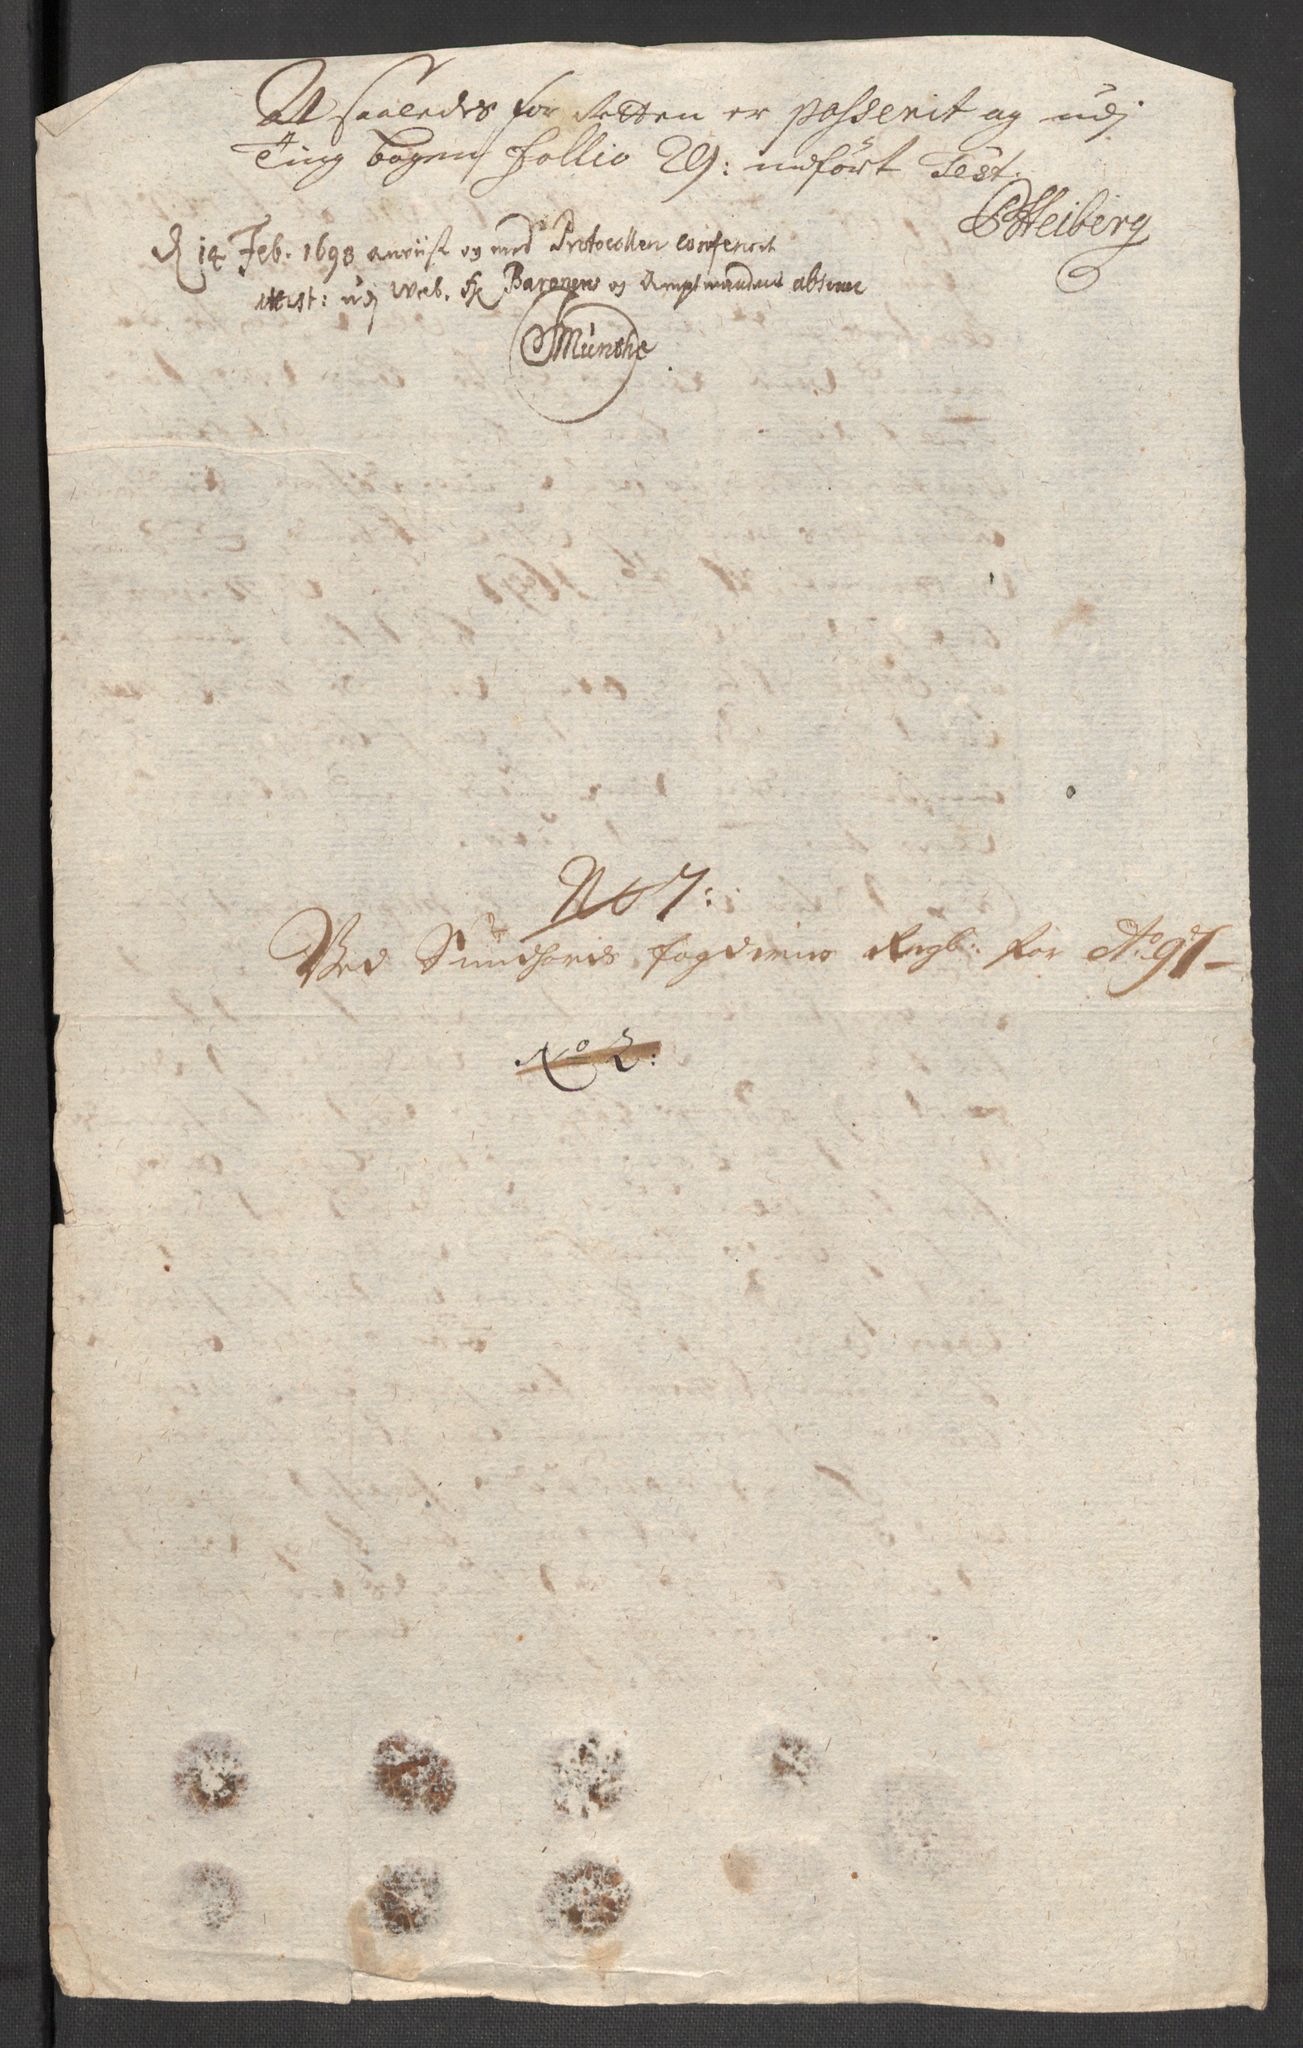 At saaledes for Retten er passerit og udj
Ting bogen follio 29: indført Test.
PHeiberg
D 14 Feb. 1698 anviist og med Protocollen conferert
attest: udj Welb. Hr Baronens og Amptmandens absence
Münthe
No 7:
Ved Sundhords fogderies Regb: for Ao 97
No 2: